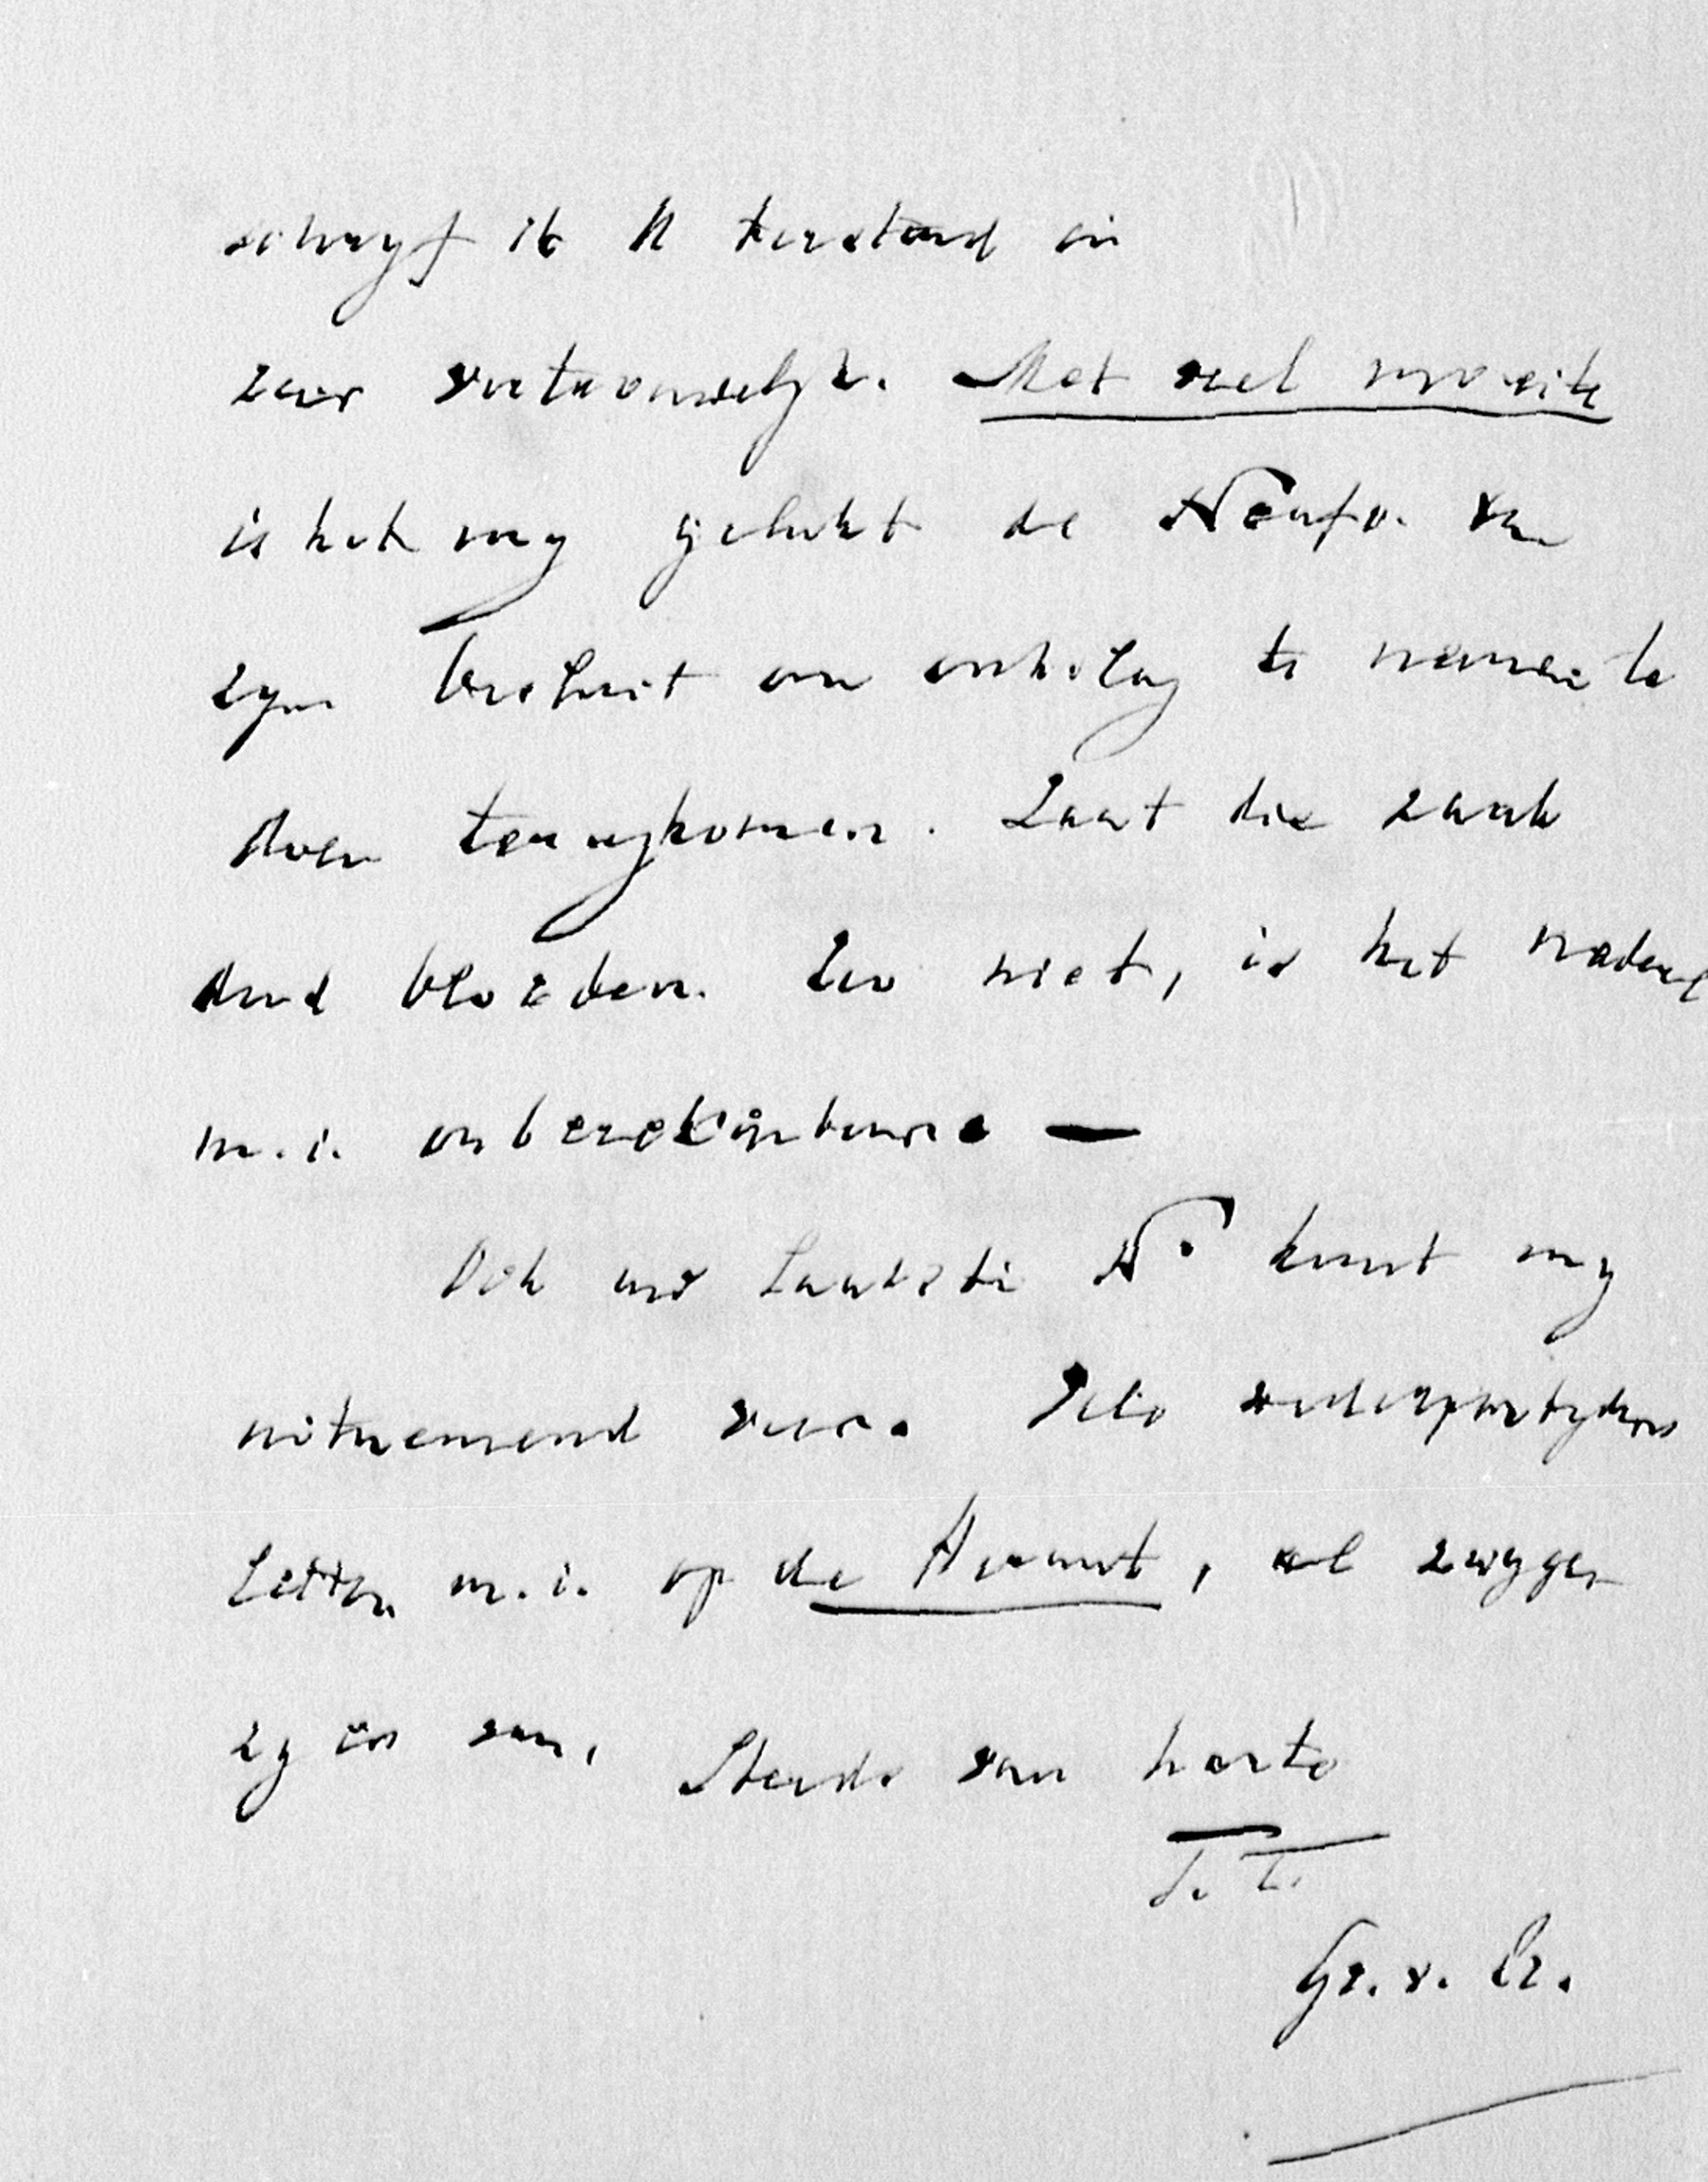 schryf ik U terstond en
zeer vertrouwelyk. Met veel moeite
is het my gelukt de Neufv. van
zyn besluit om ontslag te nemen te
doen terugkomen. Laat die zaak
dood bloeden. Zoo niet, is het nadeel
m.i. onberekenbaar —
Ook uw laatste No komt my
uitnemend voor. Vele wederpartyders
letten m.i. op de Heraut, al zwygen
zy er van. Steeds van harte
T.T.
Gr. v. Pr.